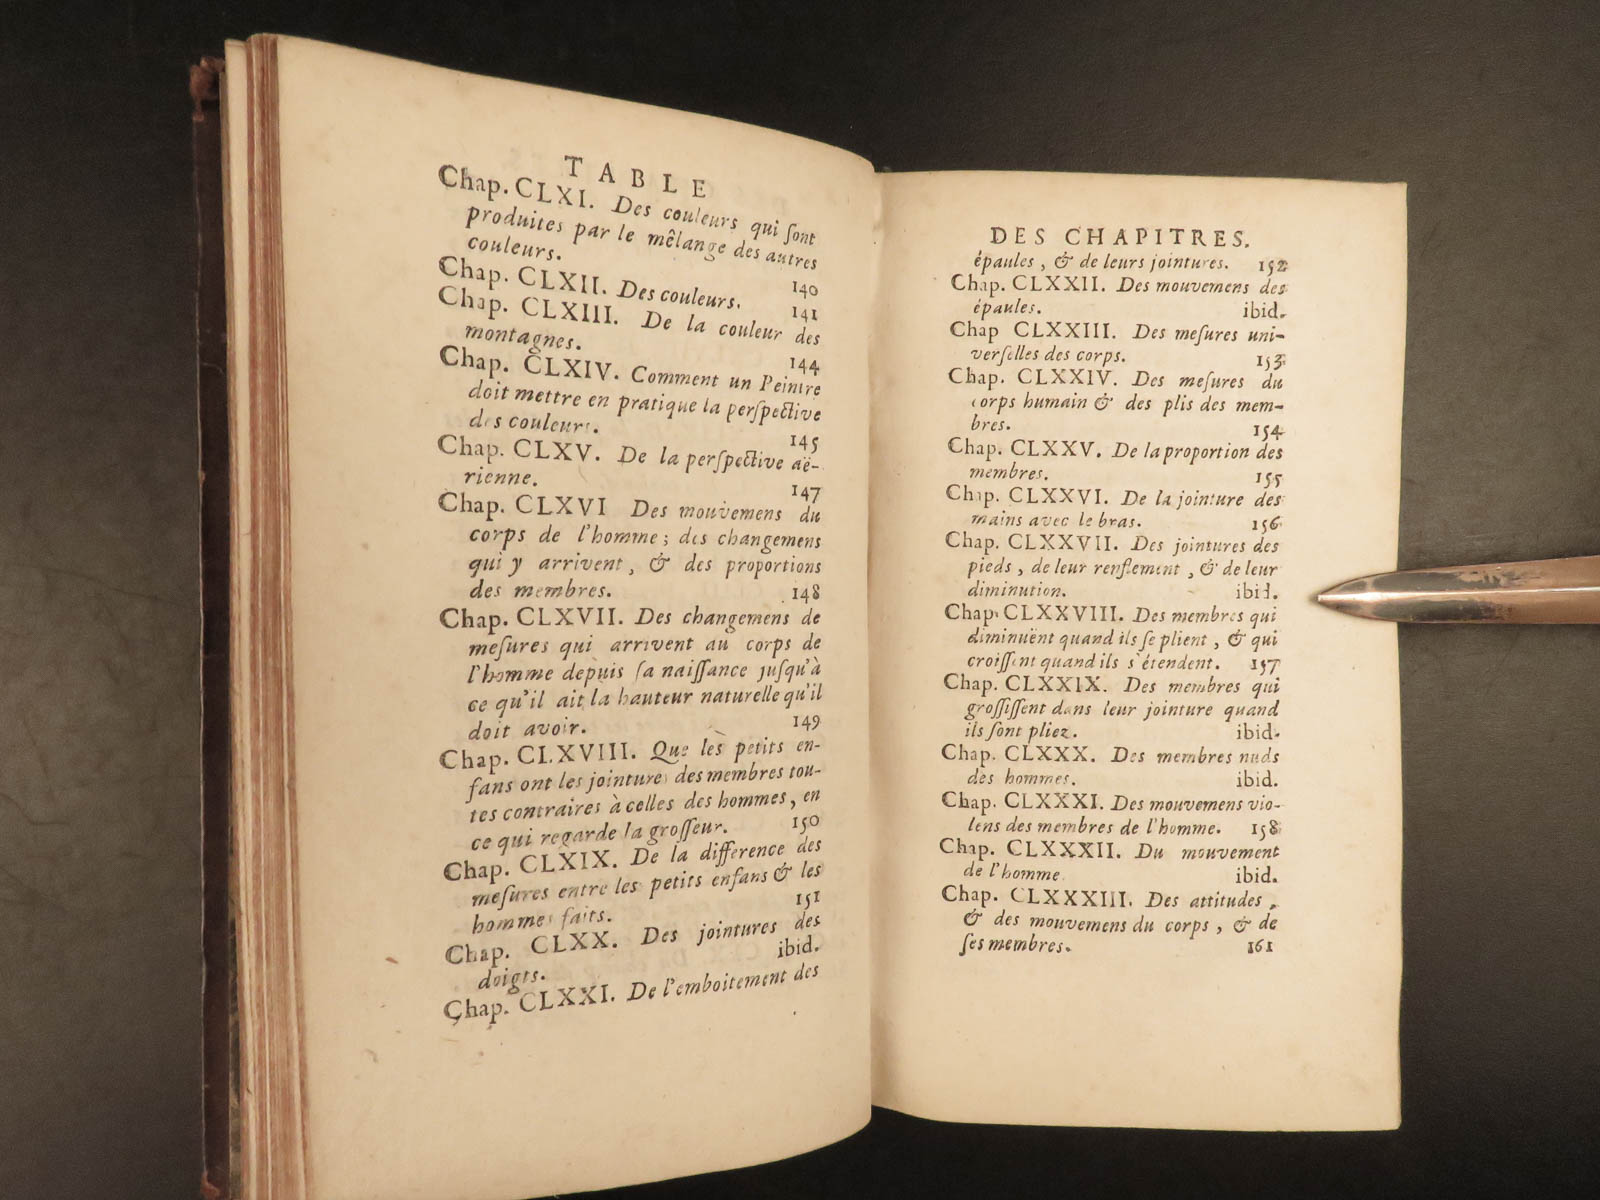 TABLE
Chap. CLXI. Des couleurs qui ſont
produites par le mêlange des autres
couleurs. 140
Chap. CLXII. Des couleurs. 141
Chap. CLXIII. De la couleur des
montagnes. 144
Chap. CLXIV. Comment un Peintre
doit mettre en pratique la perſpective
des couleurs. 145
Chap. CLXV. De la perſpective aë-
rienne. 147
Chap. CLXVI Des mouvemens du
corps de l'homme; des changemens
qui y arrivent, & des proportions
des membres. 148
Chap. CLXVII. Des changemens de
meſures qui arrivent au corps de
l'homme depuis ſa naiſſance juſqu'à
ce qu'il ait la hauteur naturelle qu'il
doit avoir. 149
Chap. CLXVIII. Que les petits en-
fans ont les jointures des membres tou-
tes contraires à celles des hommes, en
ce qui regarde la groſſeur. 150
Chap. CLXIX. De la difference des
meſures entre les petits enfans & les
hommes faits. 151
Chap. CLXX. Des jointures des
doigts. ibid.
Chap. CLXXI. De l'emboitement des
DES CHAPITRES.
épaules, & de leurs jointures. 152
Chap. CLXXII. Des mouvemens des
épaules. ibid.
Chap CLXXIII. Des meſures uni-
verſelles des corps. 153
Chap. CLXXIV. Des meſures du
corps humain & des plis des mem-
bres. 154
Chap. CLXXV. De la proportion des
membres. 155
Chap. CLXXVI. De la jointure des
mains avec le bras. 156
Chap. CLXXVII. Des jointures des
pieds, de leur renflement, & de leur
diminution. ibid.
Chap. CLXXVIII. Des membres qui
diminuënt quand ils ſe plient, & qui
croiſſent quand ils s'étendent. 157
Chap. CLXXIX. Des membres qui
groſſiſſent dans leur jointure quand
ils ſont pliez. ibid.
Chap. CLXXX. Des membres nuds
des hommes. ibid.
Chap. CLXXXI. Des mouvemens vio-
lens des membres de l'homme. 158
Chap. CLXXXII. Du mouvement
de l'homme ibid.
Chap. CLXXXIII. Des attitudes,
& des mouvemens du corps, & de
ſes membres. 161